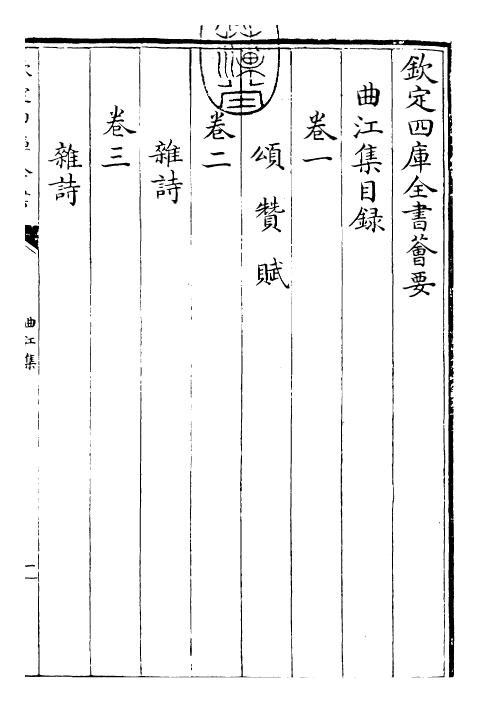 欽定四庫全書薈要
曲江集目録
卷一
頌 贊 賦
卷二
雜詩
卷三
雜詩
曲江集